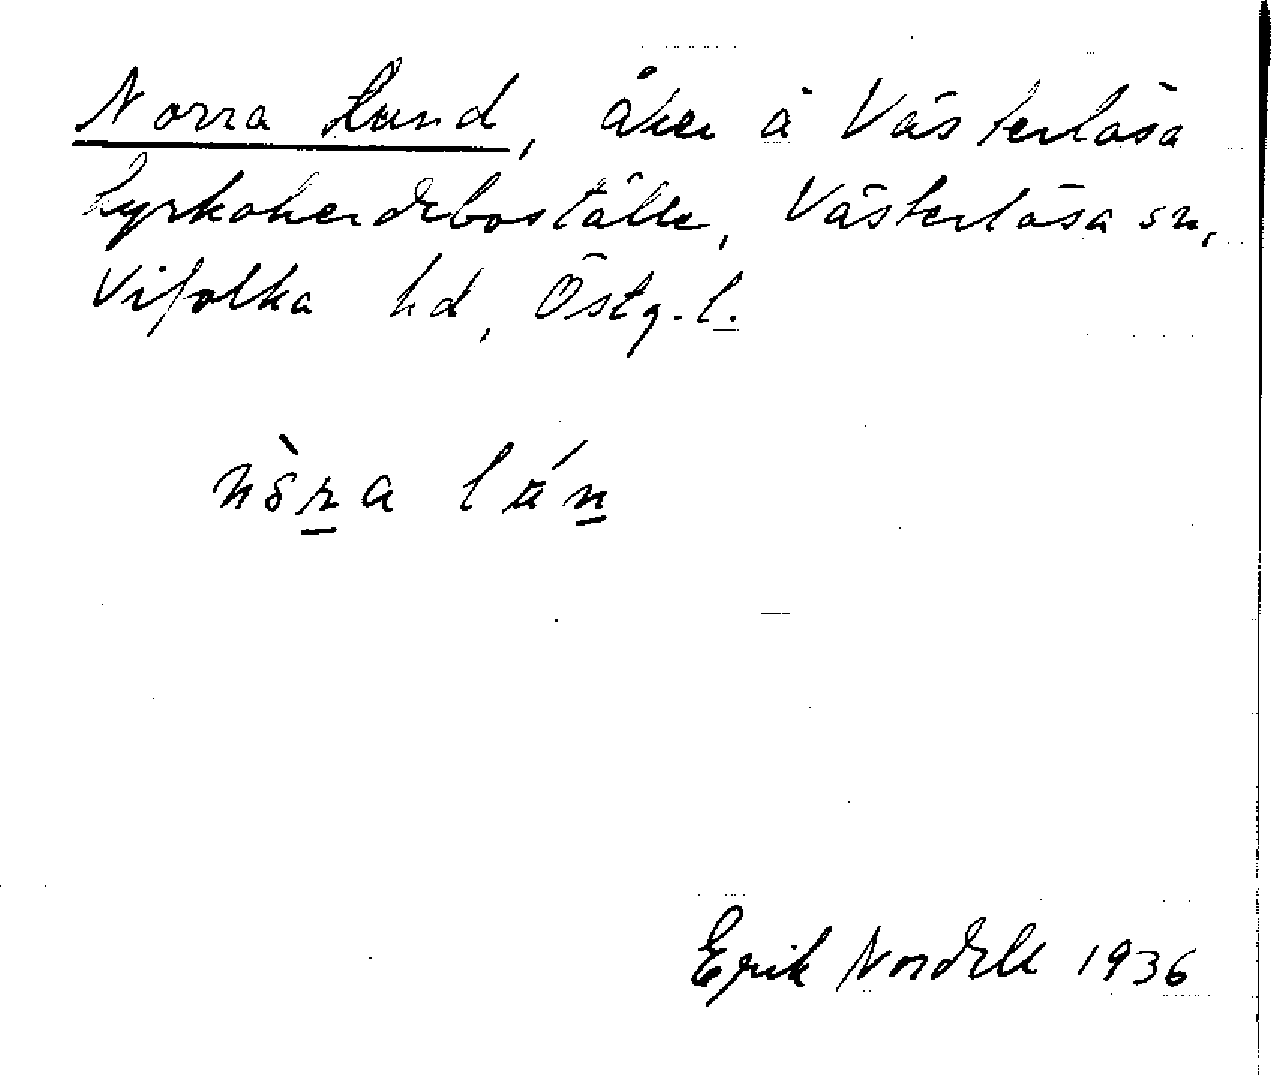 Norra Lund, åker å Västerlösa
kyrkoherdeboställe, Västerlösa sn,
Vifolka hd, Östg. l.
nòra lún
Erik Nordell 1936